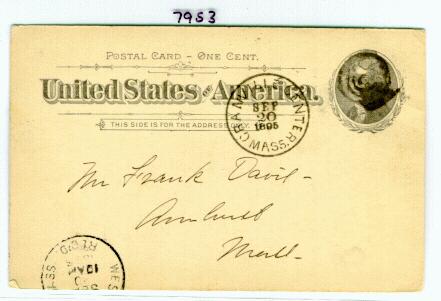 7953
POSTAL CARD - ONE CENT.
United States of America.
THIS SIDE IS FOR THE ADDRESS ONLY.
CENTER, MASS.
SEP
20
1895
Mr Frank Davis -
Amherst
Mass -
WES
REC'D
10 AM
SS